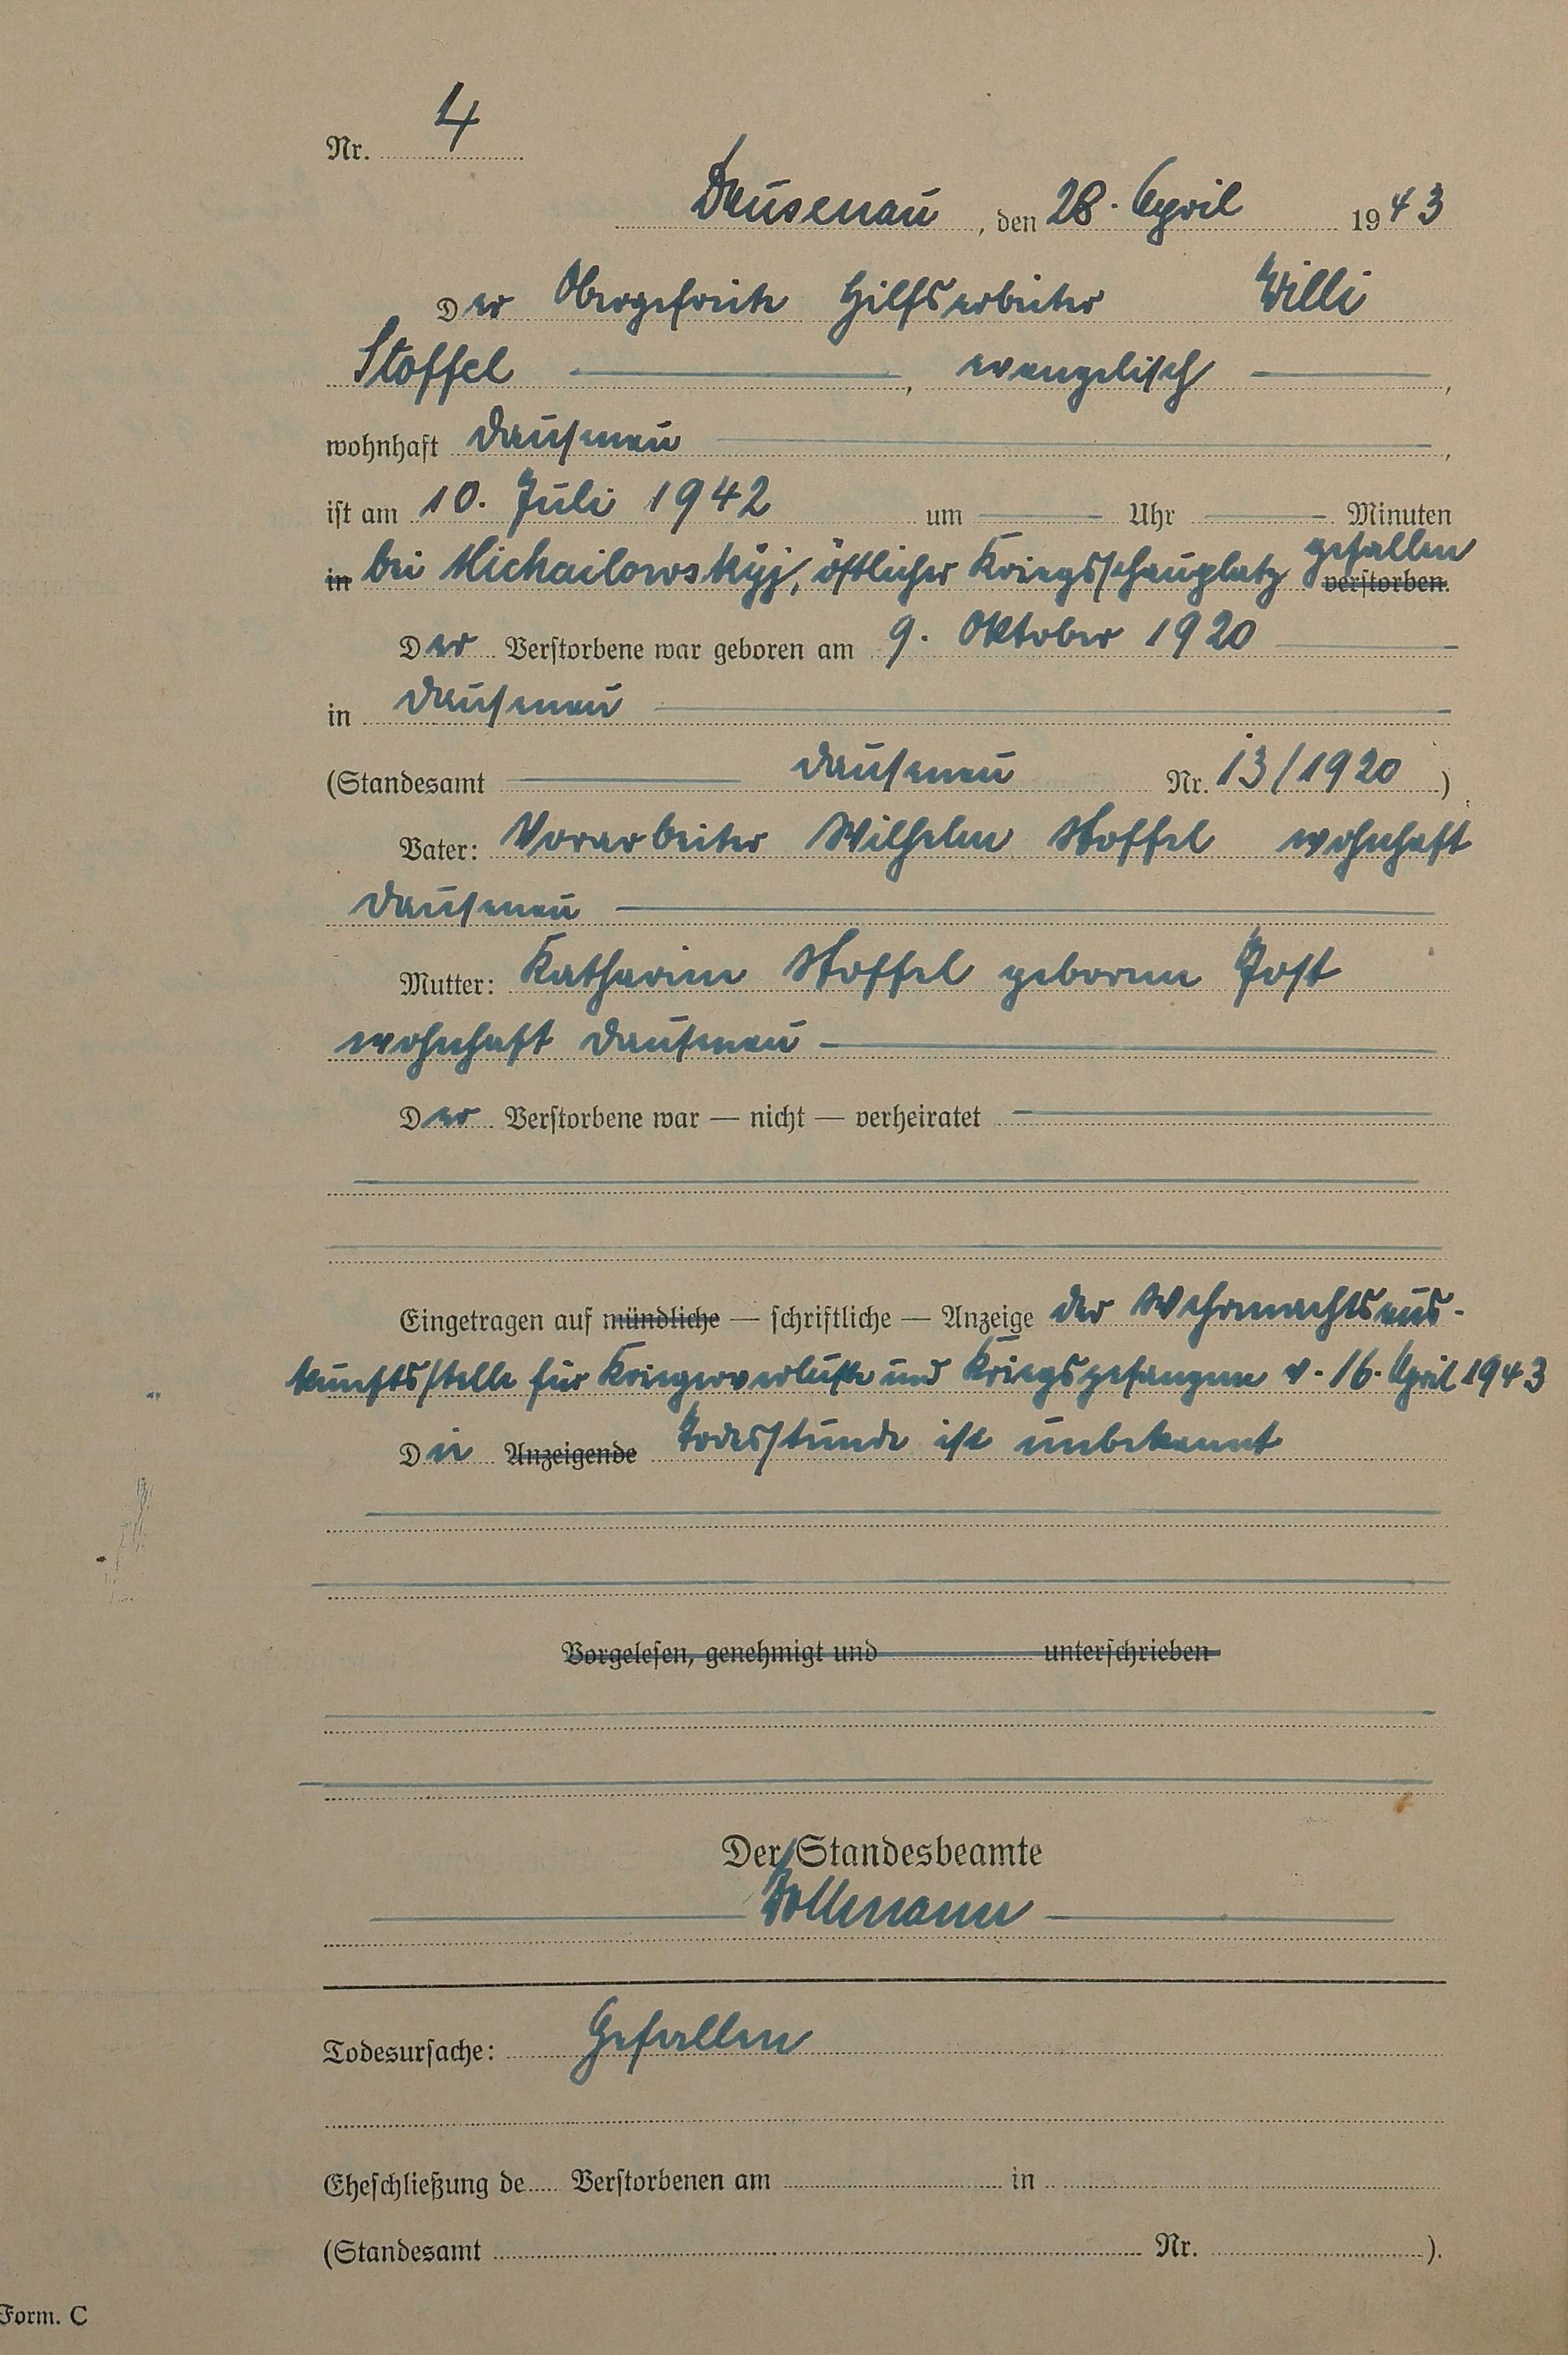 Nr. 4
Dausenau, den 28. April 1943
Der Obergefreite Hilfsarbeiter Willi
Stoffel, evangelisch,
wohnhaft Dausenau,
ist am 10. Juli 1942 um Uhr Minuten
in bei Michailowskÿj, östlicher Kriegsschauplatz gefallen verstorben.
Der Verstorbene war geboren am 9. Oktober 1920
in Dausenau
(Standesamt Dausenau Nr. 13/1920)
Vater: Vorarbeiter Wilhelm Stoffel wohnhaft
Dausenau
Mutter: Katharine Stoffel geborene Post
wohnhaft Dausenau
Der Verstorbene war — nicht — verheiratet
Eingetragen auf mündliche — schriftliche — Anzeige der Wehrmachtsaus-
kunftsstelle für Kriegerverluste und Kriegsgefangene v. 16. April 1943
Die Anzeigende Todesstunde ist unbekannt
Vorgelesen, genehmigt und unterschrieben
Der Standesbeamte
Todesursache: Gefallen
Eheschließung de Verstorbenen am in
(Standesamt Nr. ).
Form. C